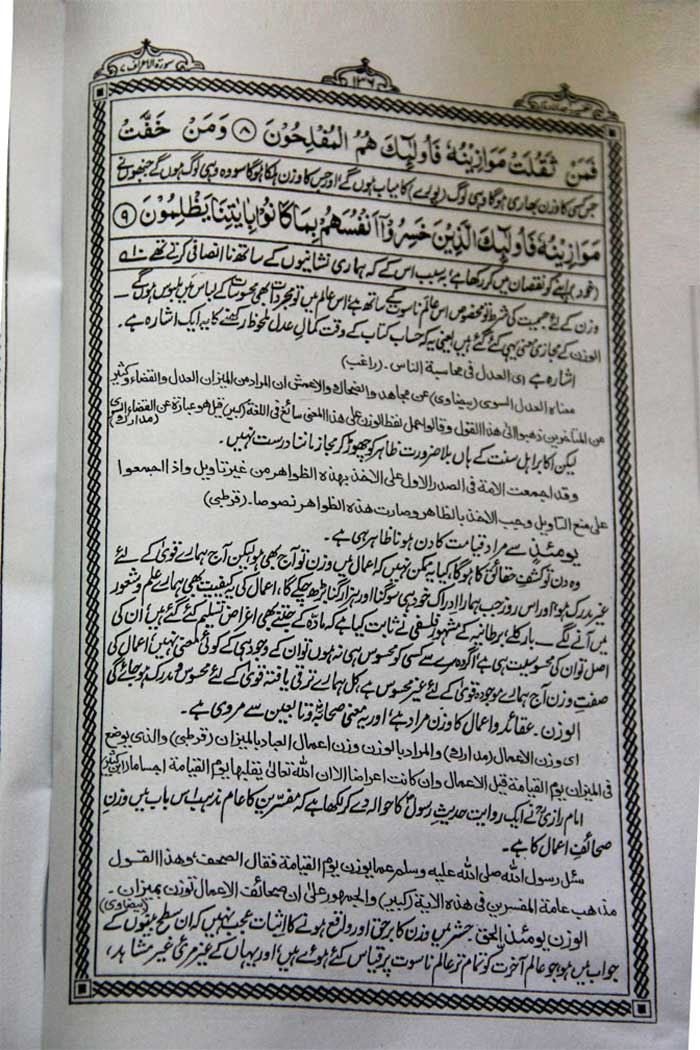 سورۃ الاعراف ۷
۱۳۶
فَمَنْ ثَقُلَتْ مَوَازِيْنُهٗ فَاُولٰٓئِكَ هُمُ الْمُفْلِحُوْنَ ۸ وَمَنْ خَفَّتْ
جس کسی کا وزن بھاری ہوگا وہی لوگ (پورے) کامیاب ہوں گے اور جس کا وزن ہلکا ہوگا سو وہ وہی لوگ ہوں گے جنھوں نے
مَوَازِيْنُهٗ فَاُولٰٓئِكَ الَّذِيْنَ خَسِرُوْٓا اَنْفُسَهُمْ بِمَا كَانُوْا بِاٰيٰتِنَا يَظْلِمُوْنَ ۹
(خود) اپنے کو نقصان میں کر رکھا ہے، بہ سبب اس کے کہ ہماری نشانیوں کے ساتھ نا انصافی کرتے تھے ۱۰
وزن کے لئے جسمیت کی شرط تو مخصوص اس عالم ناسوت کے ساتھ ہے، اس عالم میں تو مجردات بھی محسوسات کے لباس میں ملبوس ہوں گے۔
الوزن کے مجازی معنی بھی کئے گئے ہیں یعنی یہ کہ حساب کتاب کے وقت کمالِ عدل ملحوظ رکھنے کا یہ ایک اشارہ ہے۔
اشارہ ہے ای العدل فی محاسبة الناس۔ (راغب)
معناہ العدل السوی (بیضاوی) عن مجاہد والضحاک والاعمش ان المراد من المیزان العدل والقضاء وکثیر
من المتاخرین ذھبوا الی ھذا القول وقالوا حمل لفظ الوزن علی ھذا المعنی سائغ فی اللغة (کبیر) قیل ھو عبارة عن القضاء السوی (مدارک)
لیکن اکابر اہل سنت کے ہاں بلا ضرورت ظاہر کو چھوڑ کر مجاز ماننا درست نہیں۔
وقد اجمعت الامة فی الصدر الاول علی الاخذ بھذہ الظواھر من غیر تاویل واذ اجمعوا
علی منع التاویل وجب الاخذ بالظاھر وصارت ھذہ الظواھر نصوصا۔ (قرطبی)
یومئذٍ سے مراد قیامت کا دن ہونا ظاہر ہی ہے۔
وہ دن تو کشفِ حقائق کا ہوگا، کیا یہ ممکن نہیں کہ اعمال میں وزن تو آج بھی ہو لیکن آج ہمارے قویٰ کے لئے
غیر مدرک ہو! اور اس روز جب ہمارا ادراک خود ہی سو گنا اور ہزار گنا بڑھ چکے گا، اعمال کی یہ کیفیت بھی ہمارے علم و شعور
میں آنے لگے — بارکلے، برطانیہ کے مشہور فلسفی نے ثابت کیا ہے کہ مادّہ کے جتنے بھی اعراض تسلیم کئے گئے ہیں، ان کی
اصل تو ان کی محسوسیت ہی ہے، اگر وہ سرے سے کسی کو محسوس ہی نہ ہوں تو ان کے وجود ہی کے کوئی معنی نہیں، اعمال کی
صفتِ وزن آج ہمارے موجودہ قویٰ کے لئے غیر محسوس ہے، کل ہمارے ترقی یافتہ قویٰ کے لئے محسوس و مدرک ہو جائے گی
الوزن۔ عقائد و اعمال کا وزن مراد ہے، اور یہ معنی صحابہؓ و تابعین سے مروی ہے۔
ای وزن الاعمال (مدارک) والمراد بالوزن وزن اعمال العباد بالمیزان (قرطبی) والذی یوضع
فی المیزان یوم القیامة قیل الاعمال وان کانت اعراضا الا ان اللہ تعالیٰ یقلبھا یوم القیامة اجساما (ابن کثیر)
امام رازیؒ نے ایک روایت حدیثِ رسولؐ کا حوالہ دے کر لکھا ہے کہ مفسرین کا عام مذہب اس باب میں وزنِ
صحائفِ اعمال کا ہے۔
سئل رسول اللہ صلی اللہ علیہ وسلم عما یوزن یوم القیامة فقال الصحف، وھذا القول
مذھب عامة المفسرین فی ھذہ الایة (کبیر) والجمہور علیٰ ان صحائف الاعمال توزن بمیزان۔ (بیضاوی)
الوزن یومئذ الحق۔ حشر میں وزن کا برحق اور واقع ہونے کا اثبات عجب نہیں کہ ان سطح بینوں کے
جواب میں ہو، جو عالمِ آخرت کو تمام تر عالمِ ناسوت پر قیاس کئے ہوئے ہیں، اور یہاں کے غیر مرئی غیر مشاہد،